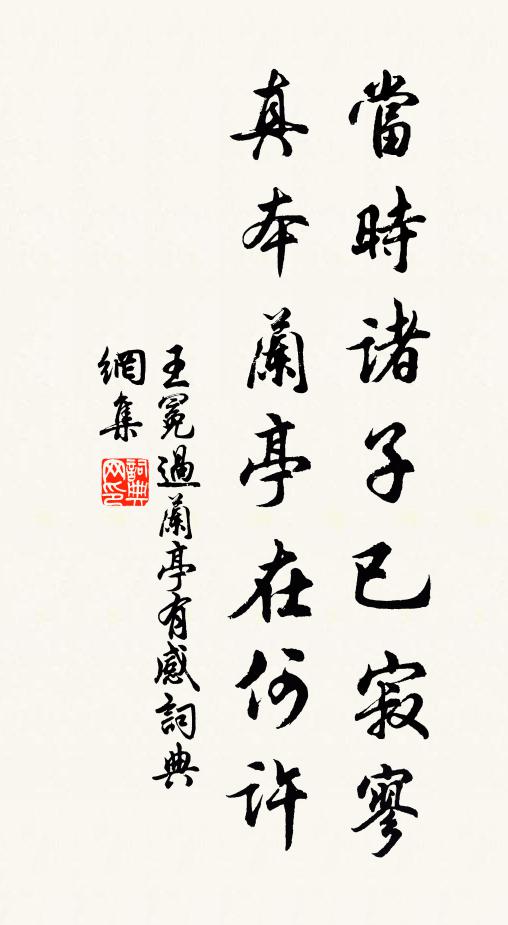 當時諸子已寂寥
真本蘭亭在何許
王冕過蘭亭有感詞典
網集
詞典
网印